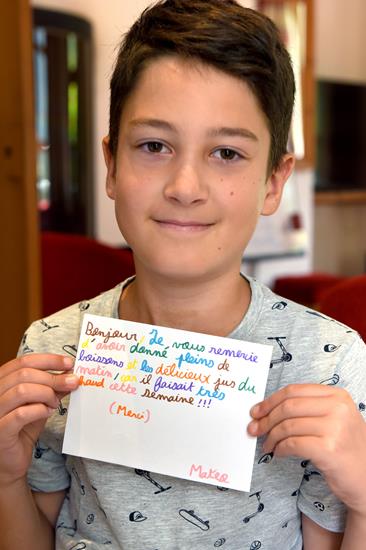 Bonjour, Je vous remerie
d'avoir donné pleins de
boissons et les délicieux jus du
matin, car il faisait très
chaud cette semaine !!!
(Merci)
Mateo